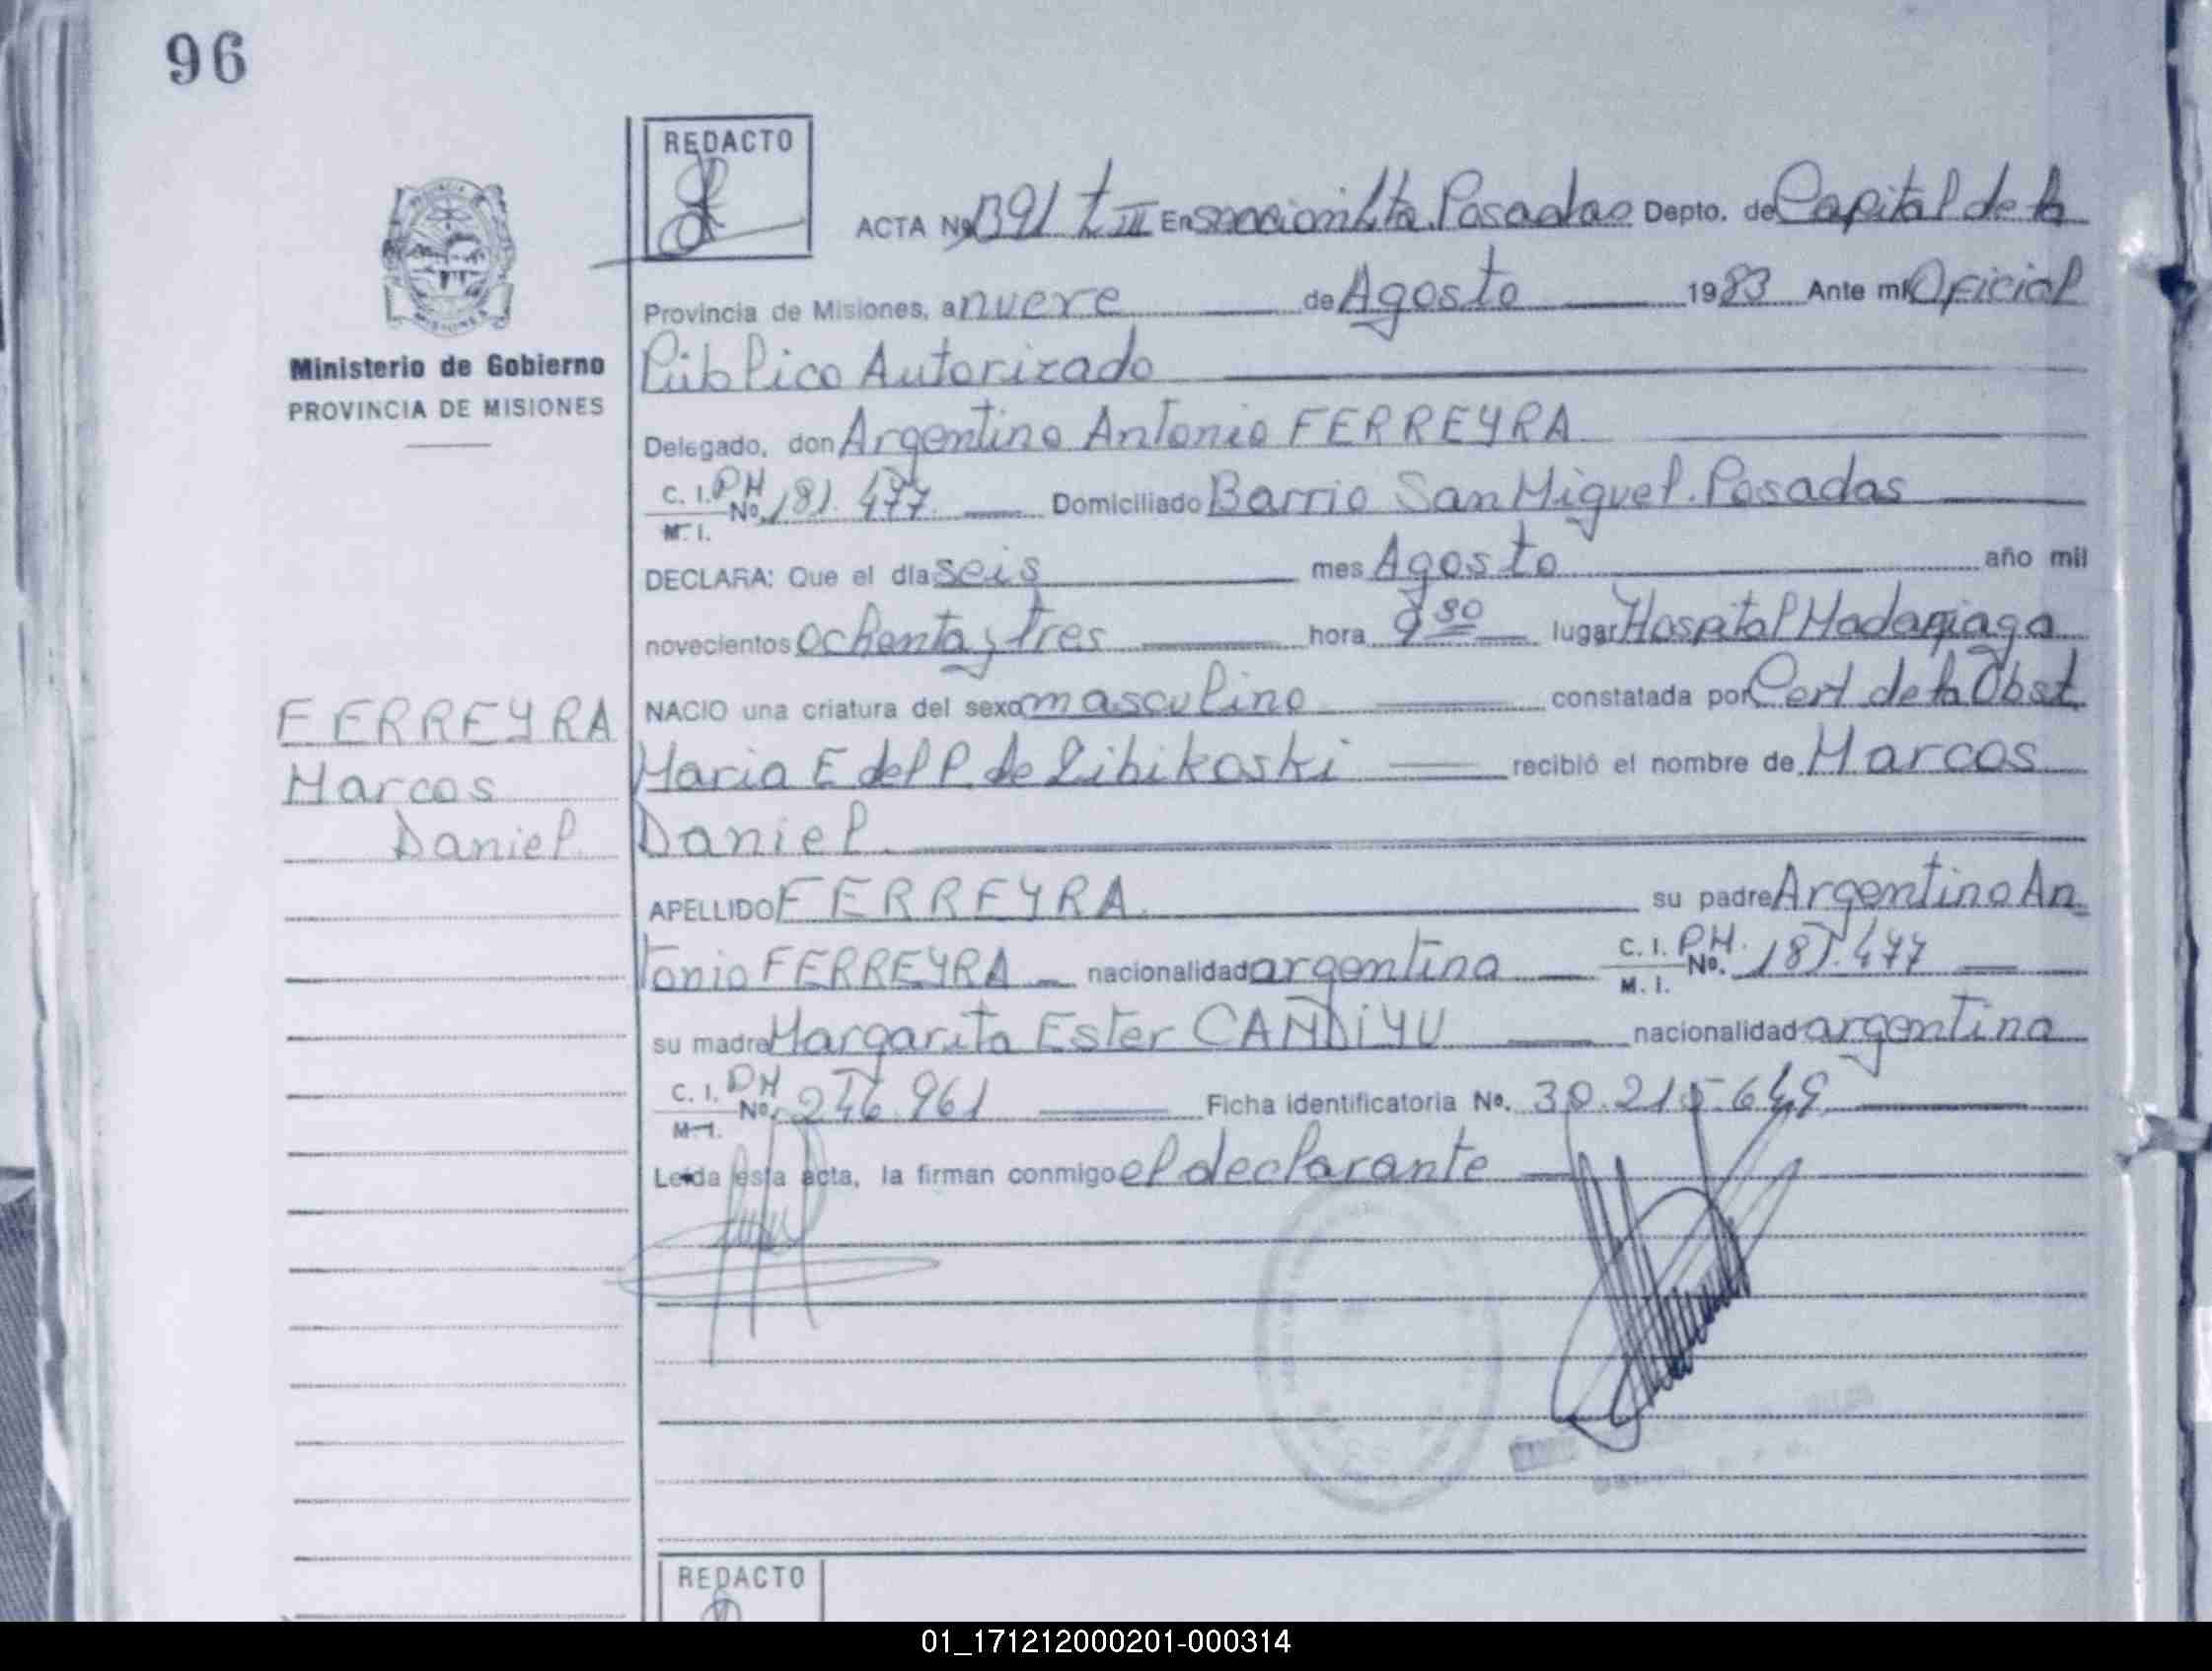 96
REDACTO
ACTA Nº 1391 t III En sección 4ta. Posadas Depto. de Capital de la
Provincia de Misiones, a nueve de Agosto 1983 Ante mi Oficial
Ministerio de Gobierno
PROVINCIA DE MISIONES
Público Autorizado
Delegado, don Argentino Antonio FERREYRA
C. I. PM
M. I. No. 181.477 Domiciliado Barrio San Miguel. Posadas
DECLARA: Que el día seis mes Agosto año mil
novecientos ochenta y tres hora 9 30 lugar Hospital Madariaga
NACIO una criatura del sexo masculino constatada por Cert de la Obst
FERREYRA
Marcos
Daniel.
Maria E del P. de recibió el nombre de Marcos
Daniel.
APELLIDO FERREYRA. su padre Argentino An
tonio FERREYRA nacionalidad argentina C. I. PM.
M. I. No. 181.477
su madre Margarita Ester CANDIYU nacionalidad argentina
C. I. PM
M. I. No. 246.961 Ficha identificatoria No. 30.215.649
Leída esta acta, la firman conmigo el declarante
REDACTO
01_171212000201-000314